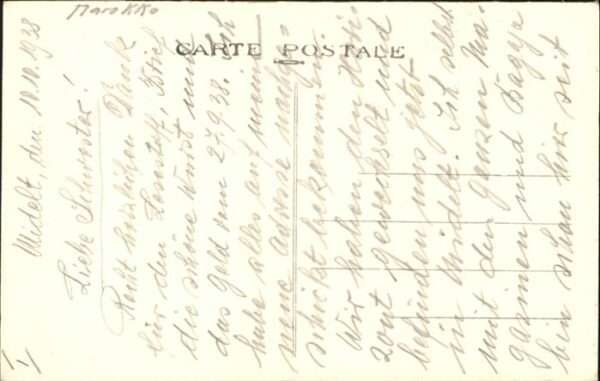 Marokko
CARTE POSTALE
Midelt, den 10.10.1938
Liebe Schwester!
Recht herzlichen Dank
für den Lesestoff, Brief
die schöne Wurst und
das Geld vom 27.9.38. Ich
habe alles auf meine
neue Adresse nachge-
schickt bekommen.
Wir haben den Hori-
zont gewechselt und
befinden uns jetzt
in Midelt. Ich selbst
mit den ganzen Ma-
gazinen und Bagage
bin schon hier seit
1/